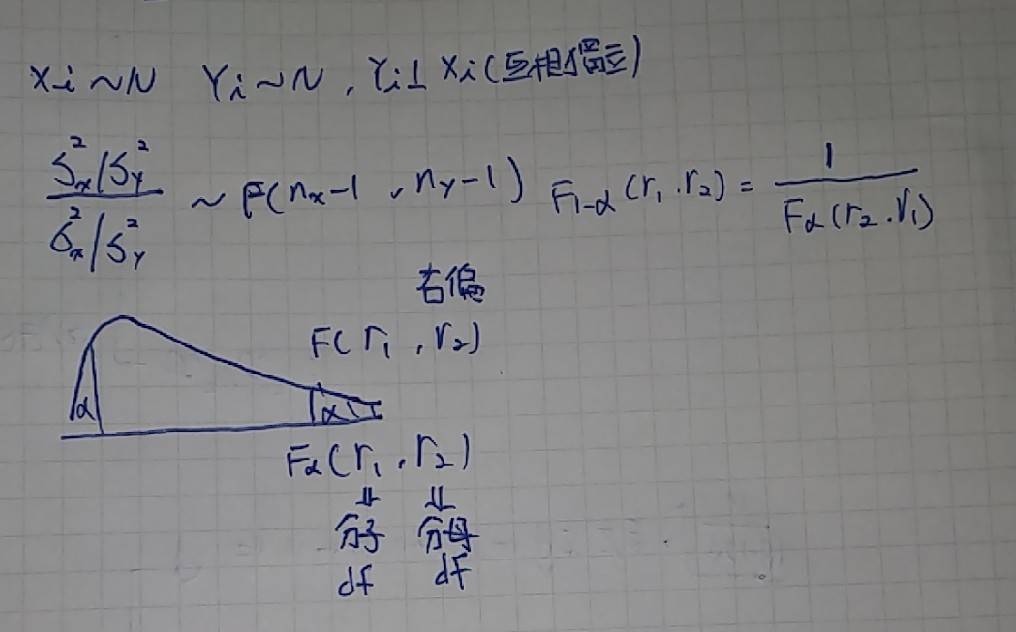 Xi ~ N Yi ~ N , Yi ⊥ Xi (互相獨立)
Sx²/SY² / σx²/SY² ~ F(nx-1 , nY-1) F1-α (r1 . r2) = 1 / Fα (r2 . r1)
右偏
F( r1 , r2)
α α
Fα (r1 , r2)
⇓ ⇓
分子 分母
df df